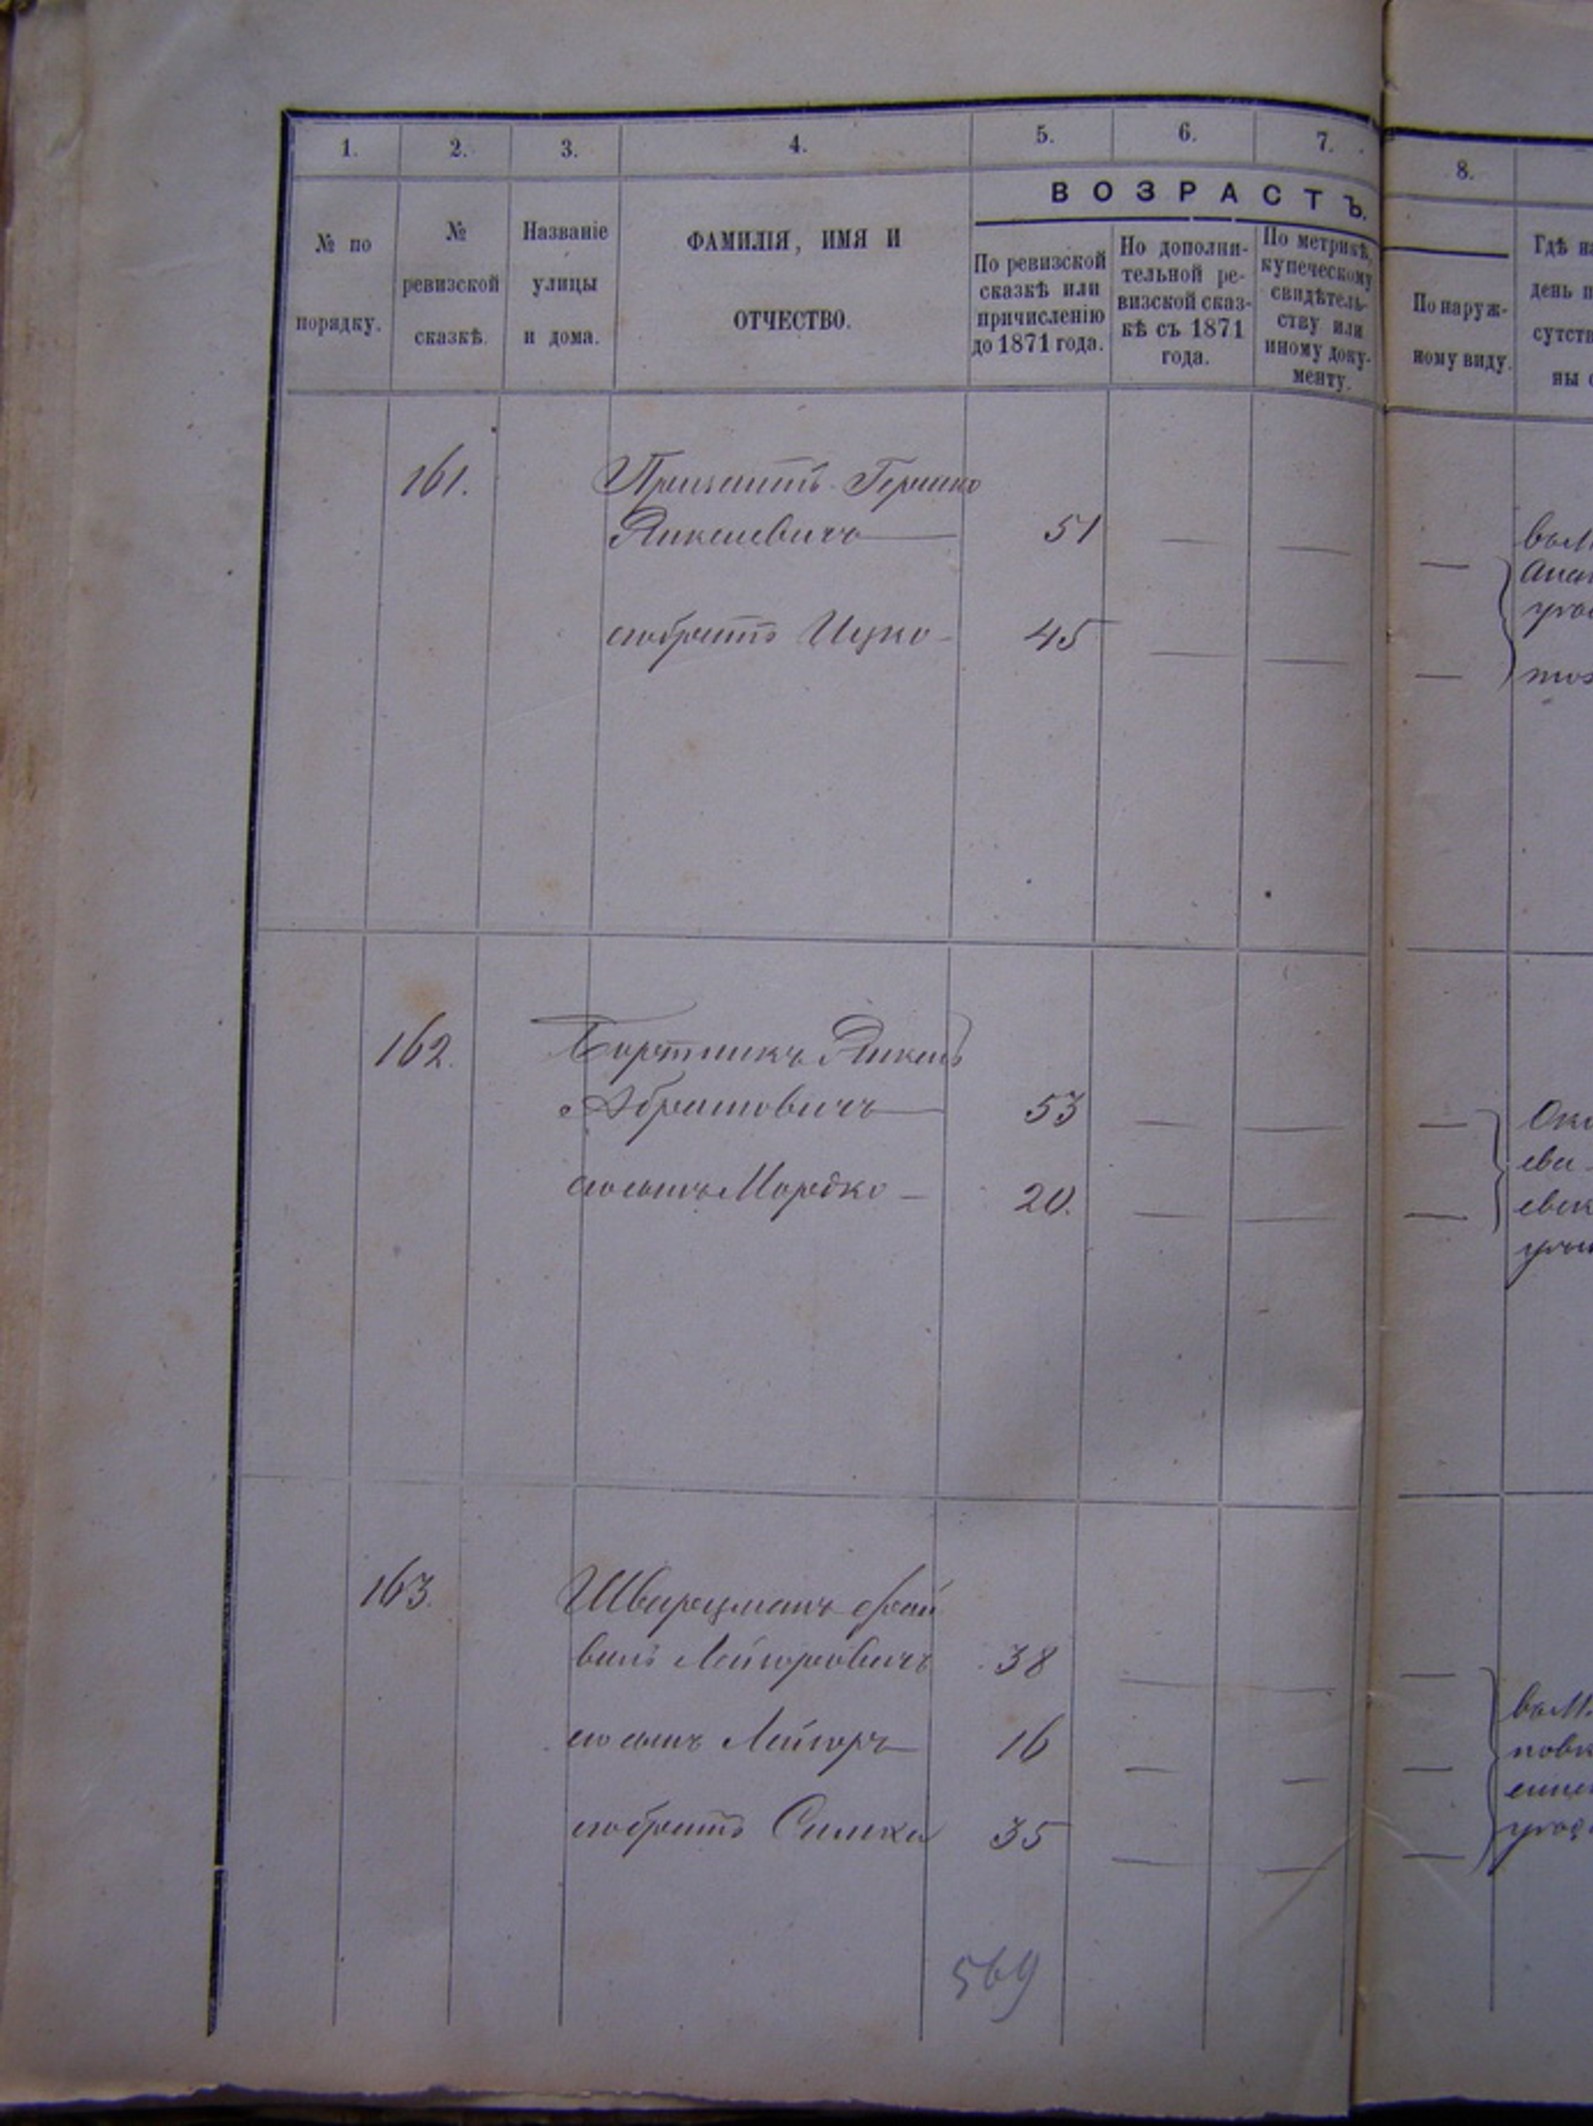 1. 2. 3. 4. 5. 6. 7. 8.
ВОЗРАСТЪ.
№ по порядку.
№ ревизской сказкѣ.
Названіе улицы и дома.
ФАМИЛІЯ, ИМЯ И ОТЧЕСТВО.
По ревизской сказкѣ или причисленію до 1871 года.
По дополнительной ревизской сказкѣ съ 1871 года.
По метрикѣ, купеческому свидѣтельству или иному документу.
По наружному виду.
Гдѣ на
день п
сутств
ны с
161. Гершко
Янкелевичъ — 51 — — —
его братъ Ицко - 45 — — —
162. Бортникъ Янкель
Абрамовичъ — 53 — — —
его сынъ Мордко — 20. — — —
163. Шварцманъ Фай
вель Лейзеровичъ 38 — — —
его сынъ Лейзеръ — 16 — — —
его братъ Симха 35 — — —
569